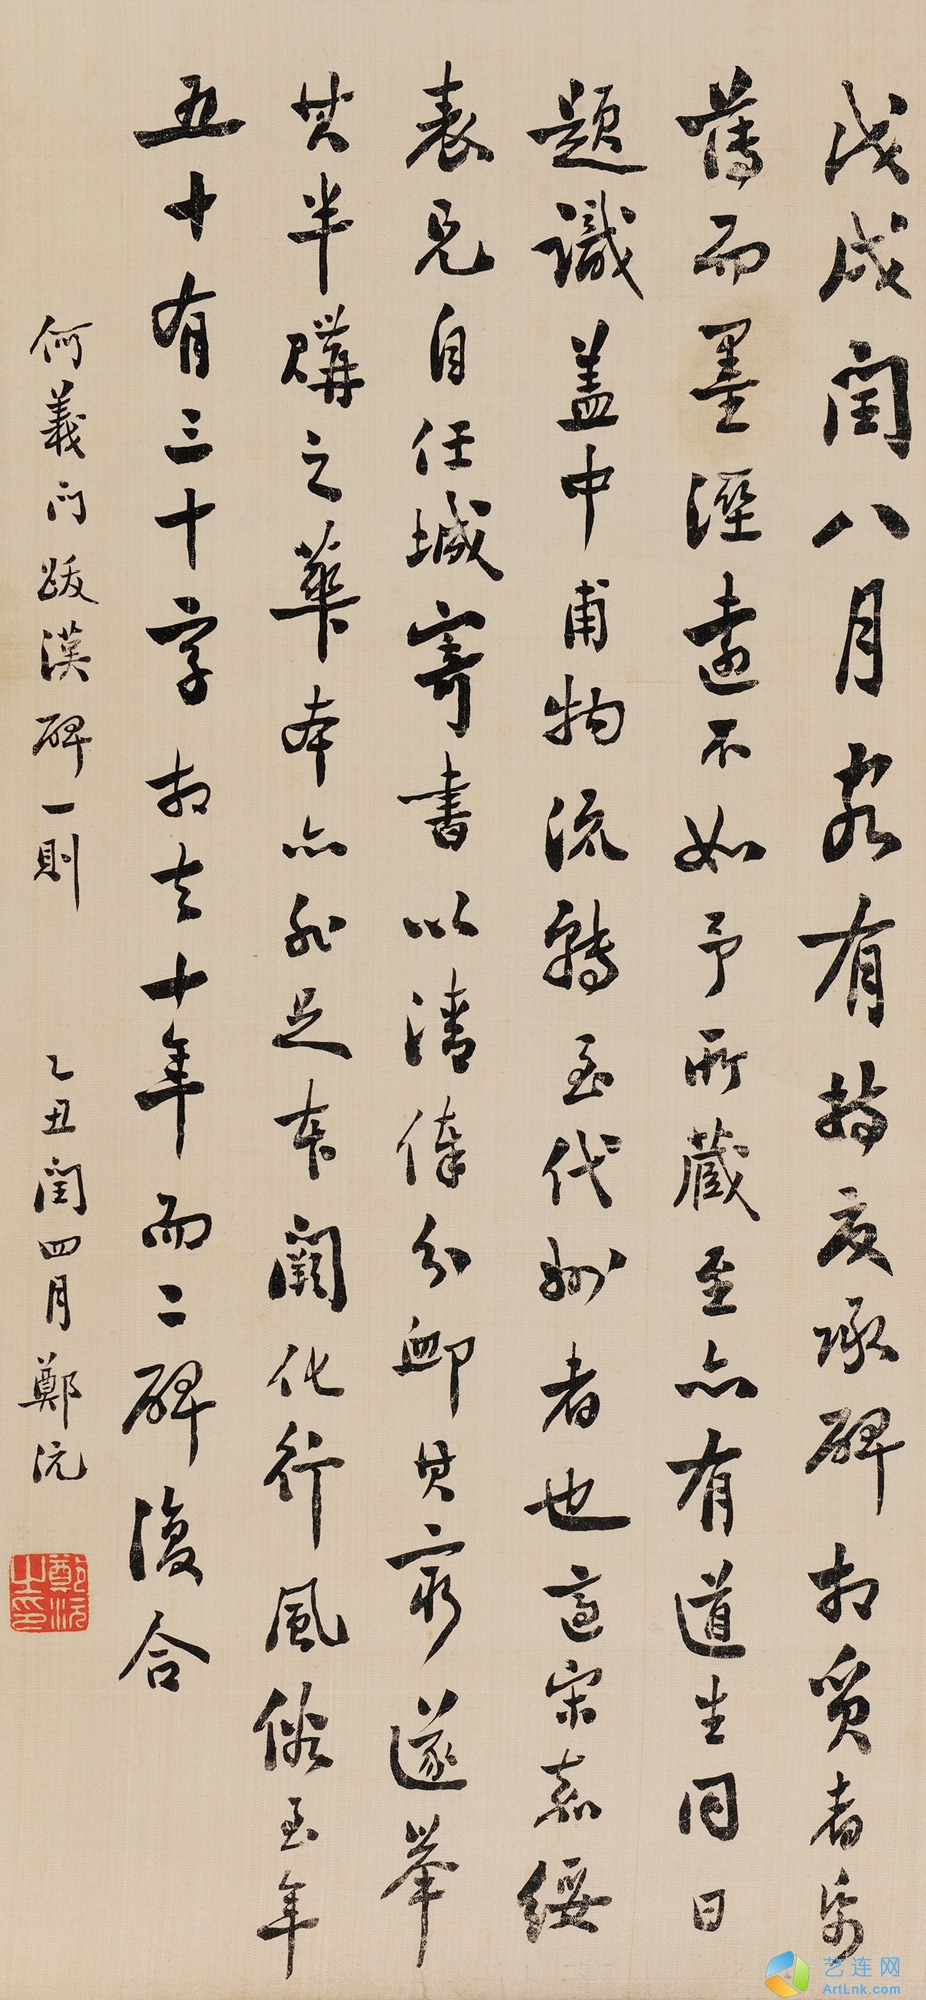 戊戌閏八月客有持夏承碑相質者紙
舊而墨溼遠不如予所藏至亦有道生同日
題識蓋中甫物流轉至代州者也適宋嘉綏
表兄自任城寄書以清俸分卹其窮遂舉
其半購之華本亦非足本闕化行風俗至年
五十有三十字相去十年而二碑復合
何義門跋漢碑一則
乙丑閏四月鄭沅
鄭沅之印
艺连网
ArtLnk.com